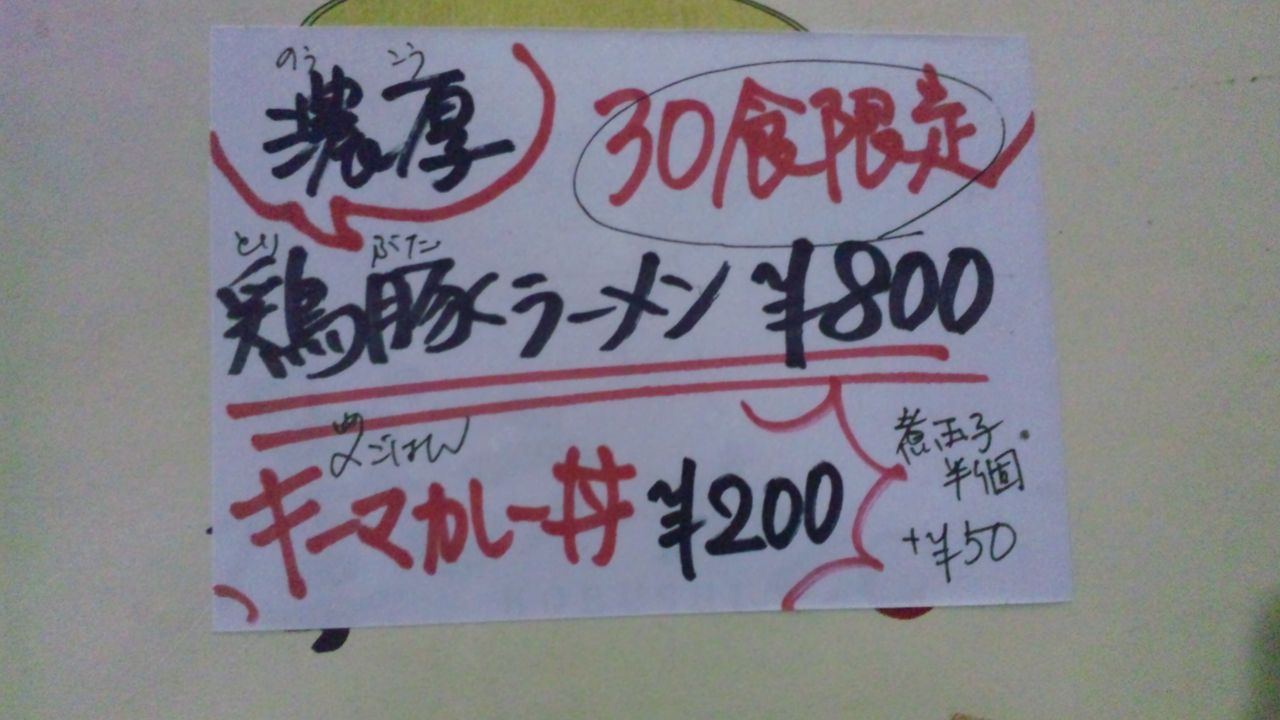 のうこう
濃厚
30食限定
とり ぶた
鶏豚ラーメン ¥800
〆ごはん
キーマカレー丼 ¥200
煮玉子
半個
+¥50